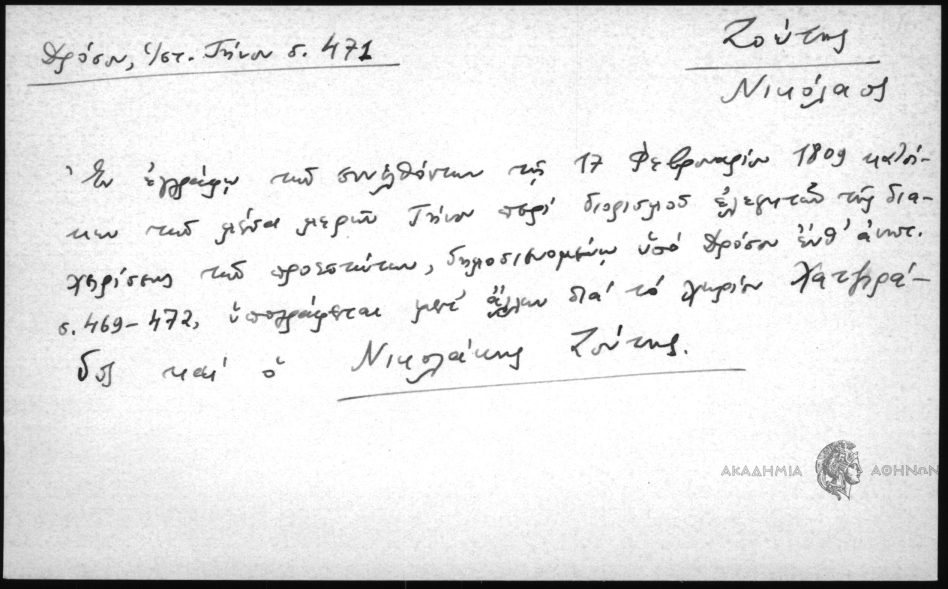 Δρόσου, Ἱστ. Τήνου σ. 471
Ζούτης
Νικόλαος
Ἐν ἐγγράφῳ τῶν συνελθόντων τῇ 17 Φεβρουαρίου 1809 κατοί-
κων τῶν μέσα μερῶν Τήνου περί διορισμοῦ ἐλεγκτῶν τῆς δια-
χειρίσεως τῶν προεστώτων, δημοσιευομένῳ ὑπό Δρόσου ἔνθ' ἀνωτ.
σ. 469-472, ὑπογράφεται μετ' ἄλλων διά τό χωρίον Χατζηρά-
δος καί ὁ Νικολάκης Ζούτης.
ΑΚΑΔΗΜΙΑ ΑΘΗΝΩΝ